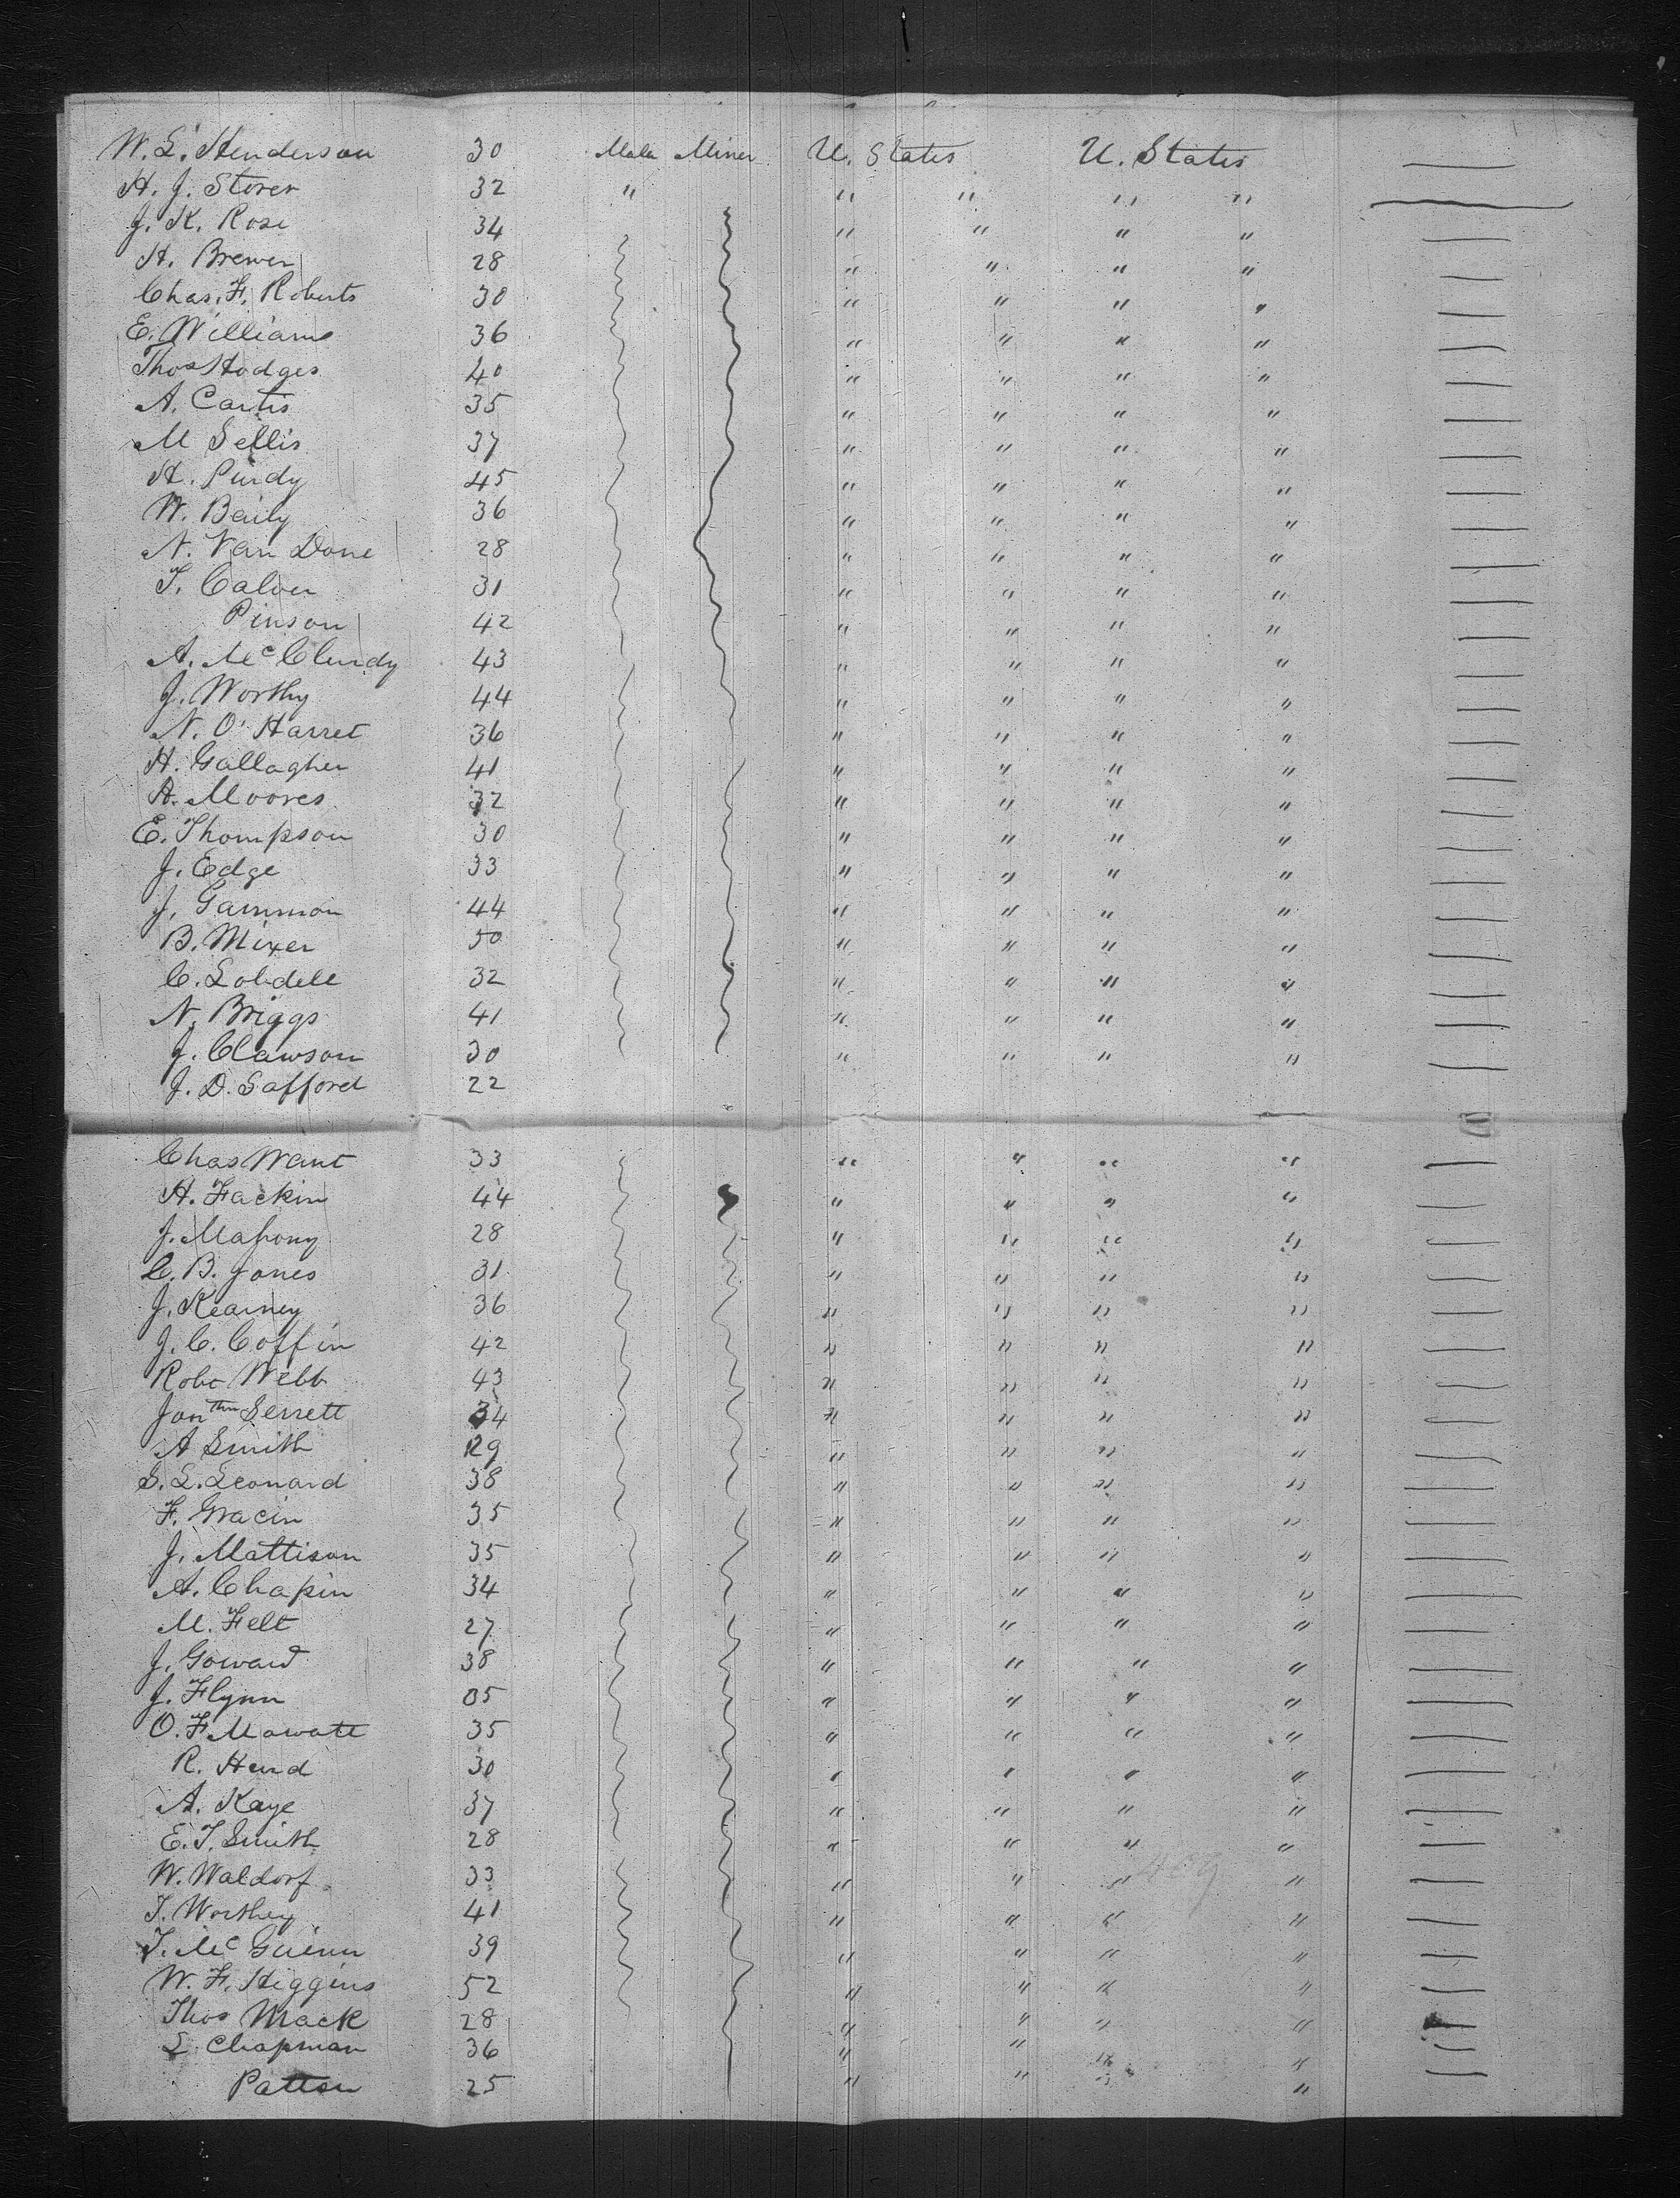 W. L. Henderson 30 Male Miner U. States U. States —
H. J. Storer 32 " " " " " —
J. K. Rose 34 " " " " —
H. Brewer 28 " " " " —
Chas. F. Roberts 30 " " " " —
E. Williams 36 " " " " —
Thos Hodges 40 " " " " —
A. Curtis 35 " " " " —
M Sellis 37 " " " " —
H. Purdy 45 " " " " —
W. Baily 36 " " " " —
N. Van Done 28 " " " " —
T. Calver 31 " " " " —
Pinson 42 " " " " —
A. McClurdy 43 " " " " —
J. Worthy 44 " " " " —
N. O'Harret 36 " " " " —
H. Gallagher 41 " " " " —
A. Moores 32 " " " " —
E. Thompson 30 " " " " —
J. Edge 33 " " " " —
J. Gammon 44 " " " " —
B. Mixer 50 " " " " —
C. Lobdell 32 " " " " —
N. Briggs 41 " " " " —
J. Clawson 30 " " " " —
J. D. Safford 22
Chas Want 33 " " " " —
H. Fackin 44 " " " " —
J. Mahony 28 " " " " —
C. B. Jones 31 " " " " —
J. Kearney 36 " " " " —
J. C. Coffin 42 " " " " —
Robt Webb 43 " " " " —
Jonthn Serrett 34 " " " " —
A Smith 29 " " " " —
S. L. Leonard 38 " " " " —
F. Gracin 35 " " " " —
J. Mattison 35 " " " " —
A. Chapin 34 " " " " —
M. Felt 27 " " " " —
J. Goward 38 " " " " —
J. Flynn 35 " " " " —
O. F. Mowatt 35 " " " " —
R. Hurd 30 " " " " —
A. Kaye 37 " " " " —
E. T. Smith 28 " " " " —
W. Waldorf 33 " " " " —
T. Worthey 41 " " " " —
T. McGuinn 39 " " " " —
W. F. Higgins 52 " " " " —
Thos Mack 28 " " " " —
L Chapman 36 " " " " —
Patton 25 " " " " —